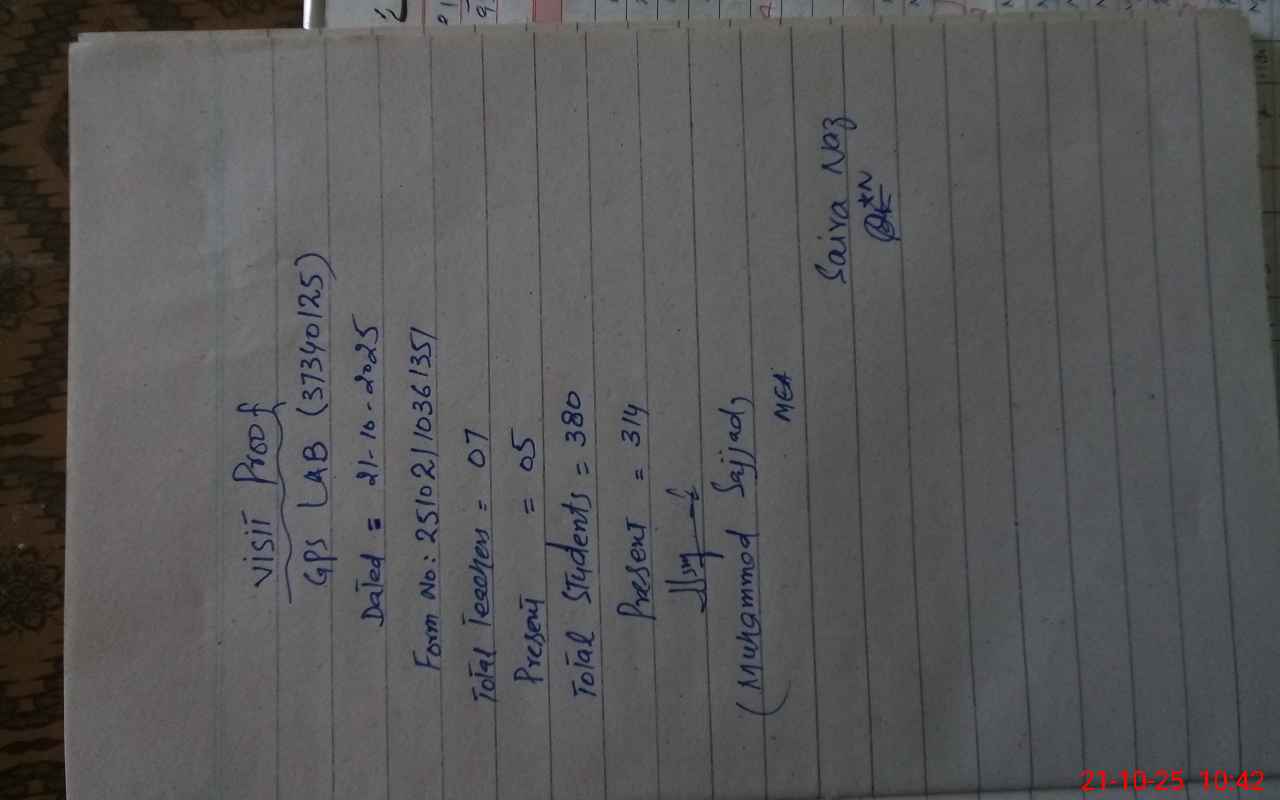 VISIT Proof
GPS LAB (37340125)
Dated = 21-10-2025
Form No: 25102110361351
Total Teachers = 07
Present = 05
Total Students = 380
Present = 314
(Muhammad Sajjad)
MEA
Saira Naz
21-10-25 10:42